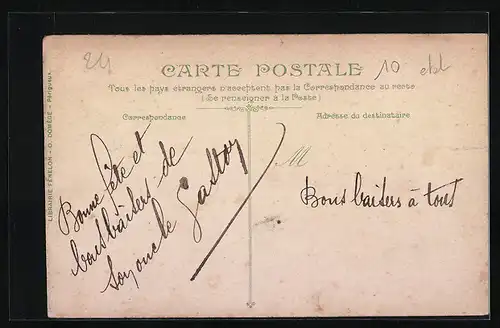 24
CARTE POSTALE
10
Tous les pays étrangers n'acceptent pas la Correspondance au recto
(Se renseigner à la Poste)
Correspondance
Adresse du destinataire
LIBRAIRIE FÉNELON - O. DOMÈGE - Périgueux.
Bonne fête et
bons baisers de
son oncle Gaston
M
Bons baisers à tous